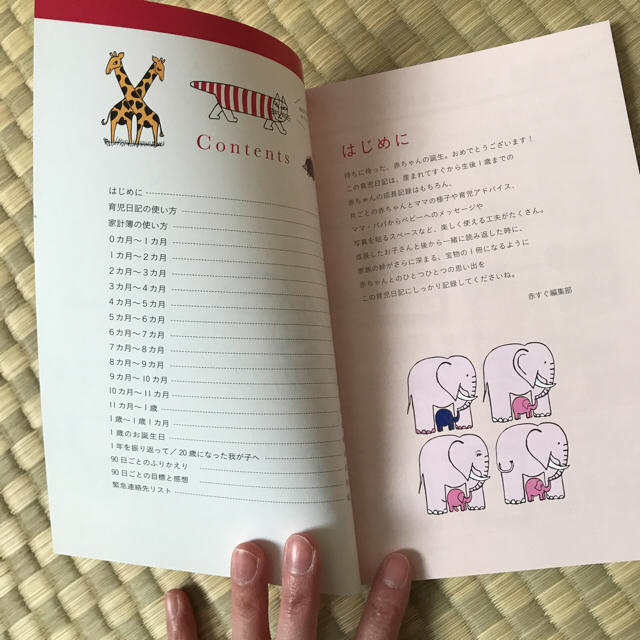 Contents
はじめに
育児日記の使い方
家計簿の使い方
0カ月〜1カ月
1カ月〜2カ月
2カ月〜3カ月
3カ月〜4カ月
4カ月〜5カ月
5カ月〜6カ月
6カ月〜7カ月
7カ月〜8カ月
8カ月〜9カ月
9カ月〜10カ月
10カ月〜11カ月
11カ月〜1歳
1歳〜1歳1カ月
1歳のお誕生日
1年を振り返って/20歳になった我が子へ
90日ごとのふりかえり
90日ごとの目標と感想
緊急連絡先リスト
はじめに
待ちに待った、赤ちゃんの誕生。おめでとうございます!
この育児日記は、産まれてすぐから生後1歳までの
赤ちゃんの成長記録はもちろん、
月ごとの赤ちゃんとママの様子や育児アドバイス、
ママ・パパからベビーへのメッセージや
写真を貼るスペースなど、楽しく使える工夫がたくさん。
成長したお子さんと後から一緒に読み返した時に、
家族の絆がさらに深まる、宝物の1冊になるように
赤ちゃんとのひとつひとつの思い出を
この育児日記にしっかり記録してくださいね。
赤すぐ編集部